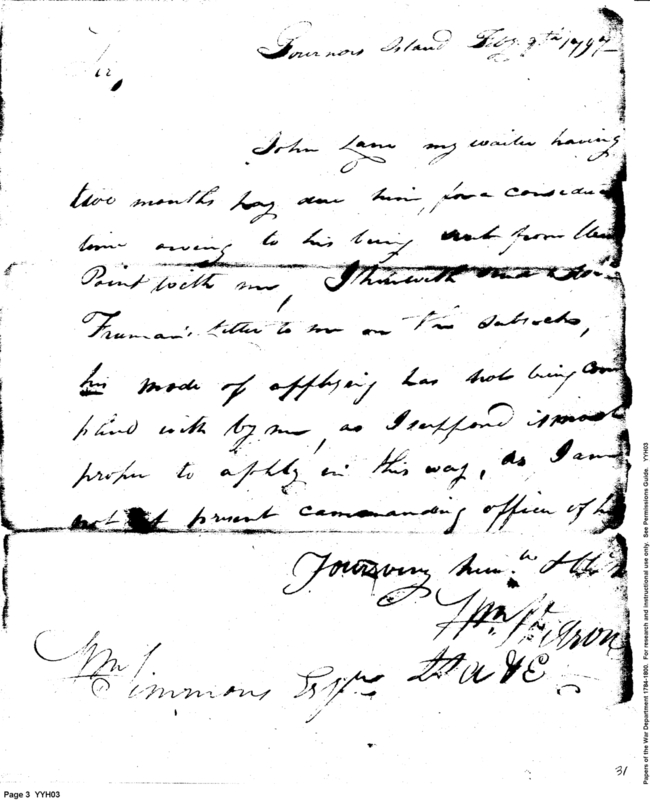 Governors Island Feby 9th 1797
Sir,
John Lane my waiter having
two months pay due him, for a consedera
time owing to his being from
Point with me, I herewith send
Freeman's Letter to me on the subject,
his mode of applying has not being com
plied with by me, as I suppose is most
proper to apply in this way, as I am
not at present commanding officer of
Yours very hum.le
Wm
Wm Simmons Esqre Lt A & E
31
Page 3 YYH03
Papers of the War Department 1784-1800. For research and instructional use only. See Permissions Guide. YYH03